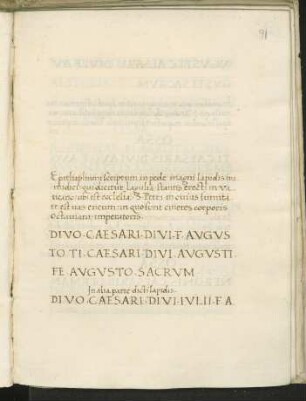 91
Epithaphium scriptum in pede magni lapidis mi
randi qui dicitur laguglia stantis erecti in Va
ticano ubi est ecclesia S. Petri in cuius summita
te est vas eneum in quo sunt cineres corporis
octaviani imperatoris.
DIVO·CAESARI·DIVI·F·AVGVS
TO·TI·CAESARI·DIVI·AVGVSTI
FE·AVGVSTO·SACRVM
In alia parte dicti lapidis.
DIVO·CAESARI·DIVI·IVLII·F·A